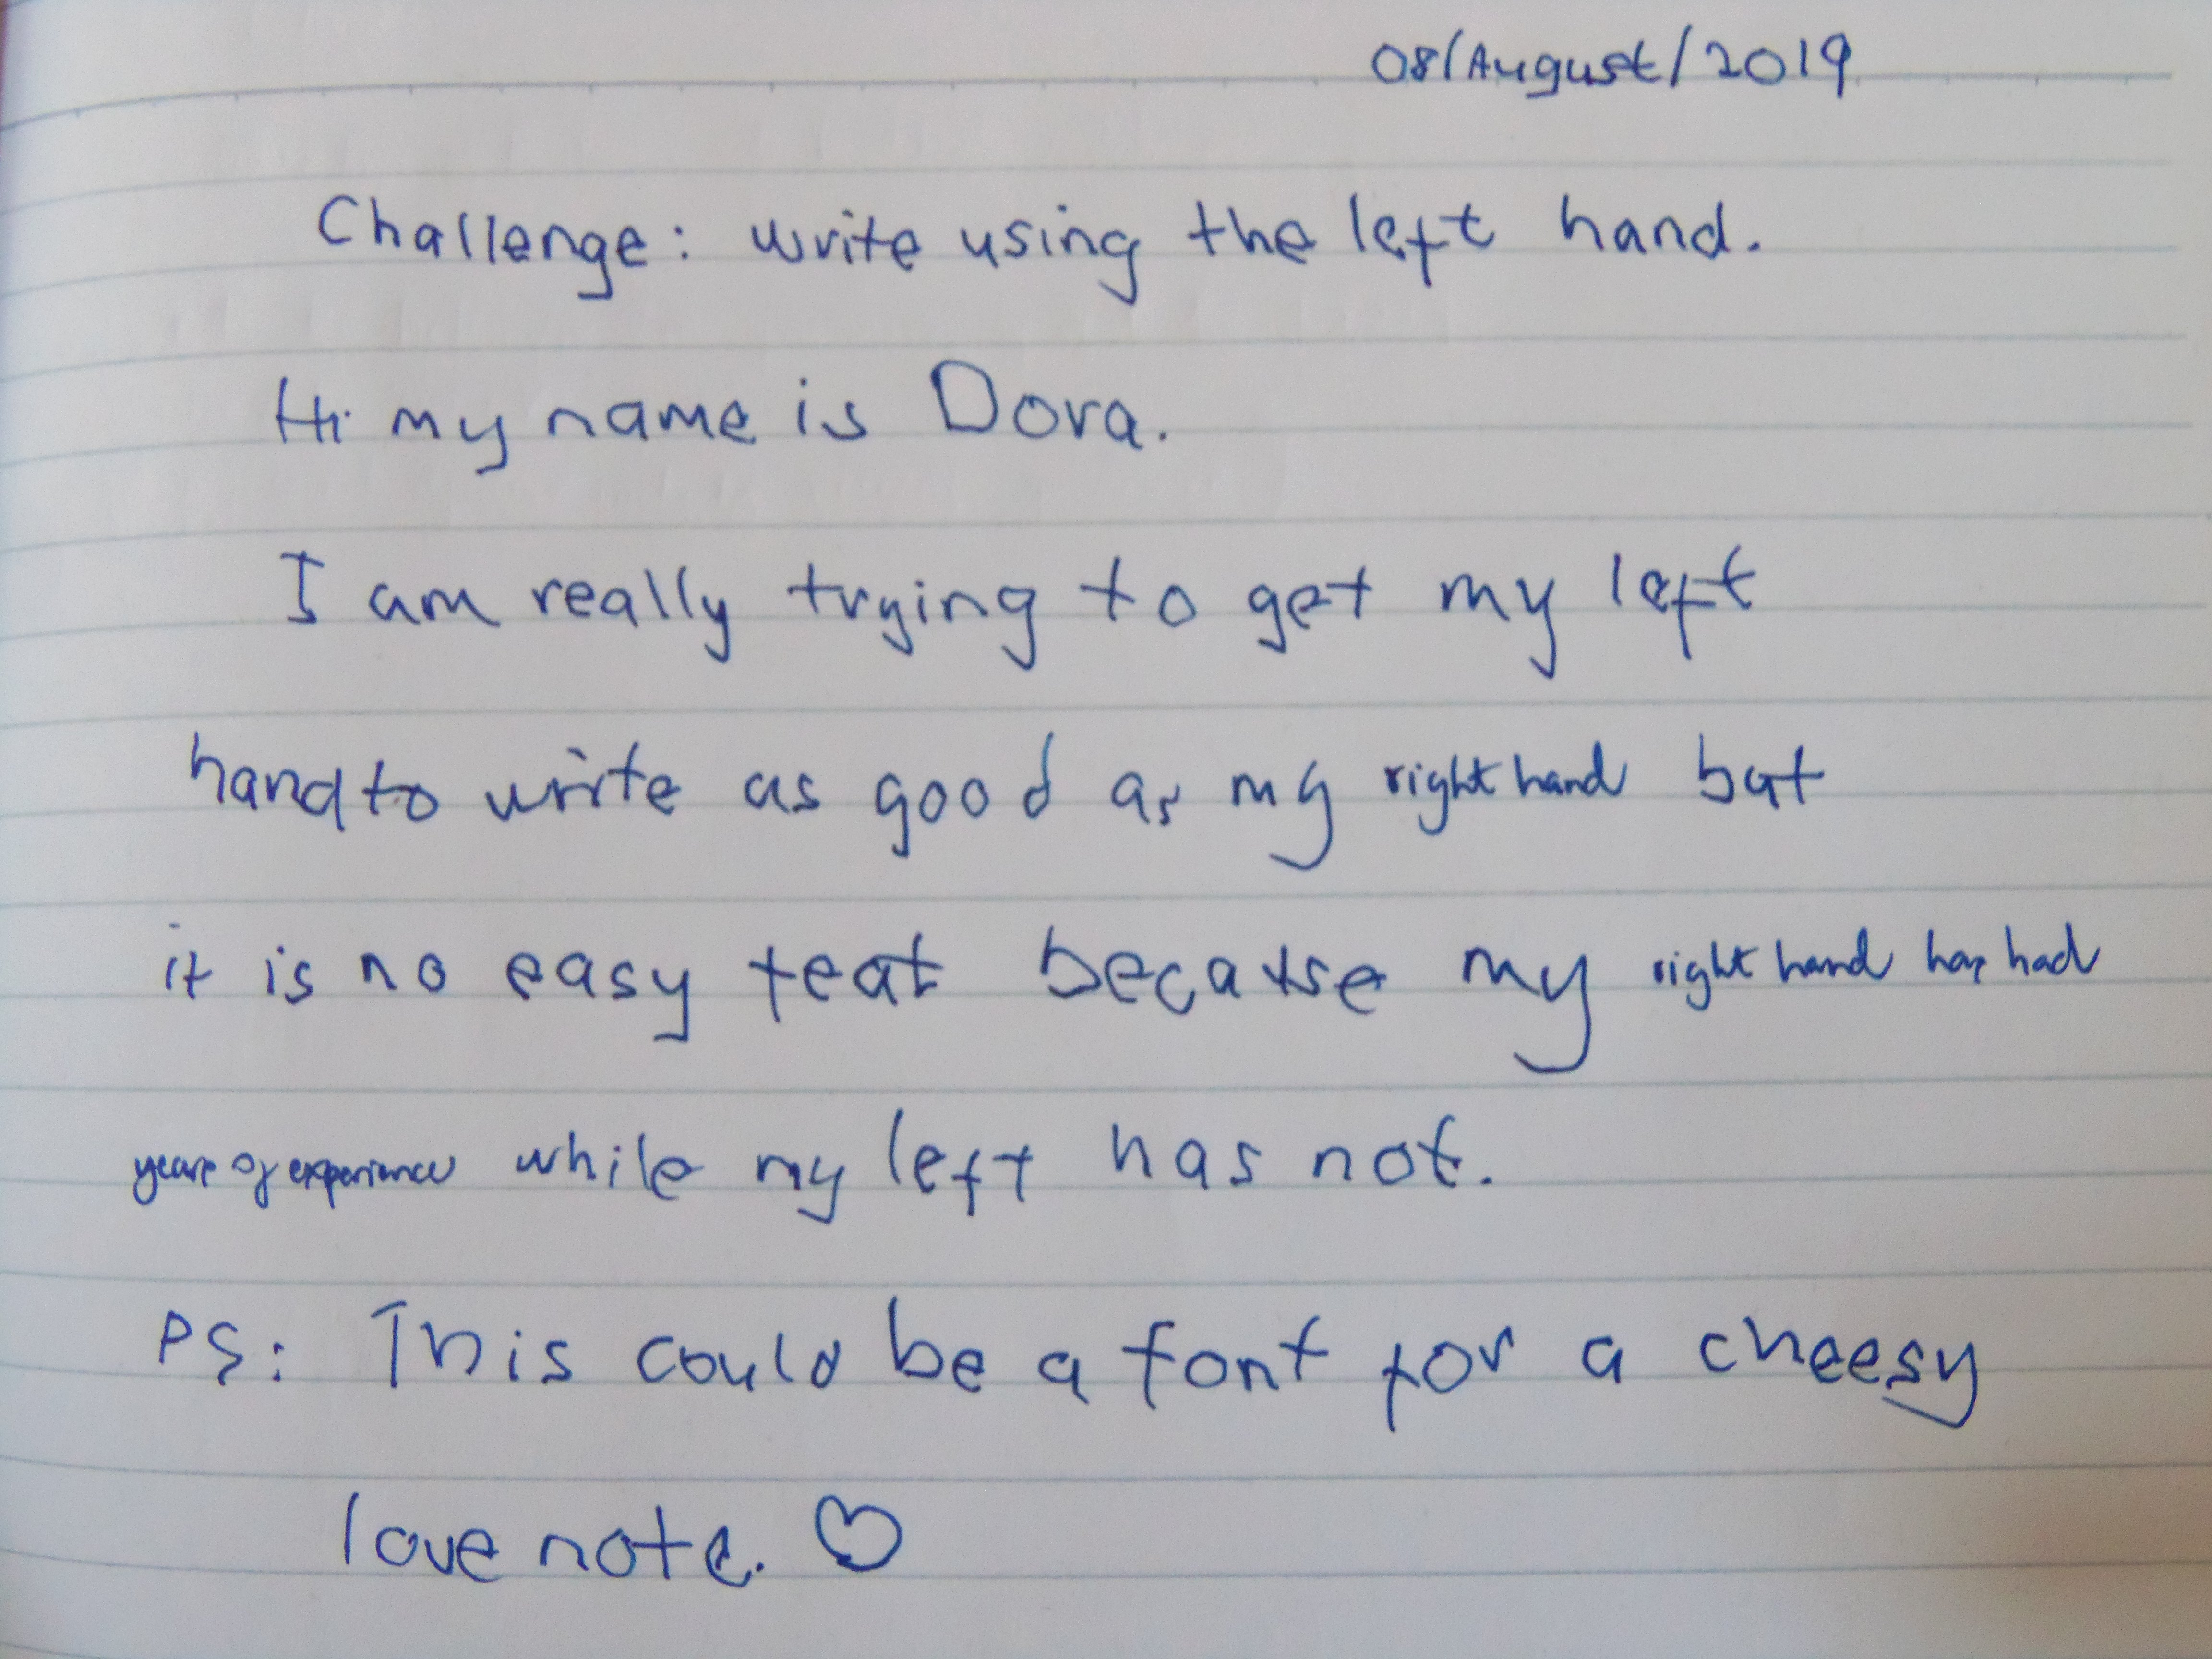 08/August/2019
Challenge: write using the left hand.
Hi my name is Dora.
I am really trying to get my left
hand to write as good as my right hand but
it is no easy feat because my right hand has had
years of experience while my left has not.
PS: This could be a font for a cheesy
love note. ♡